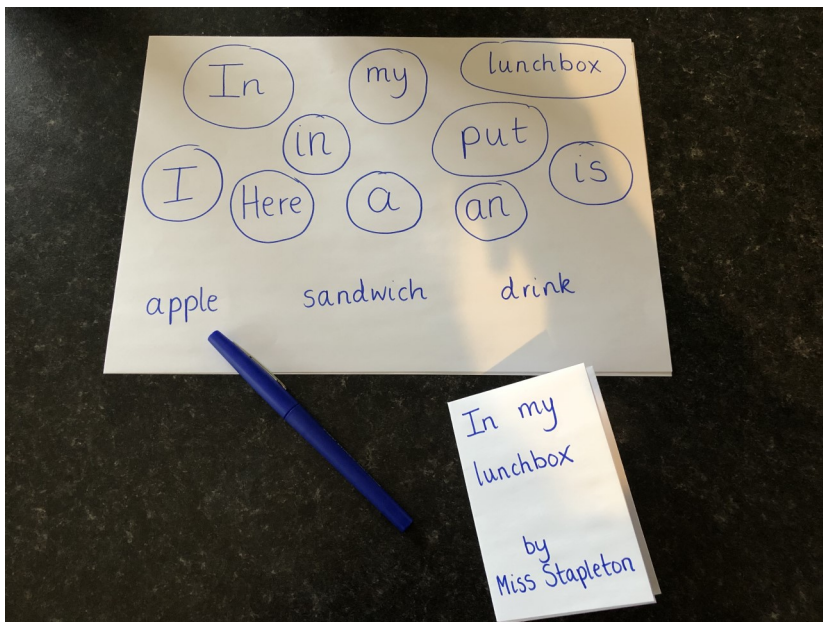 In my lunchbox
in put
I Here a an is
apple sandwich drink
In my
lunchbox
by
Miss Stapleton